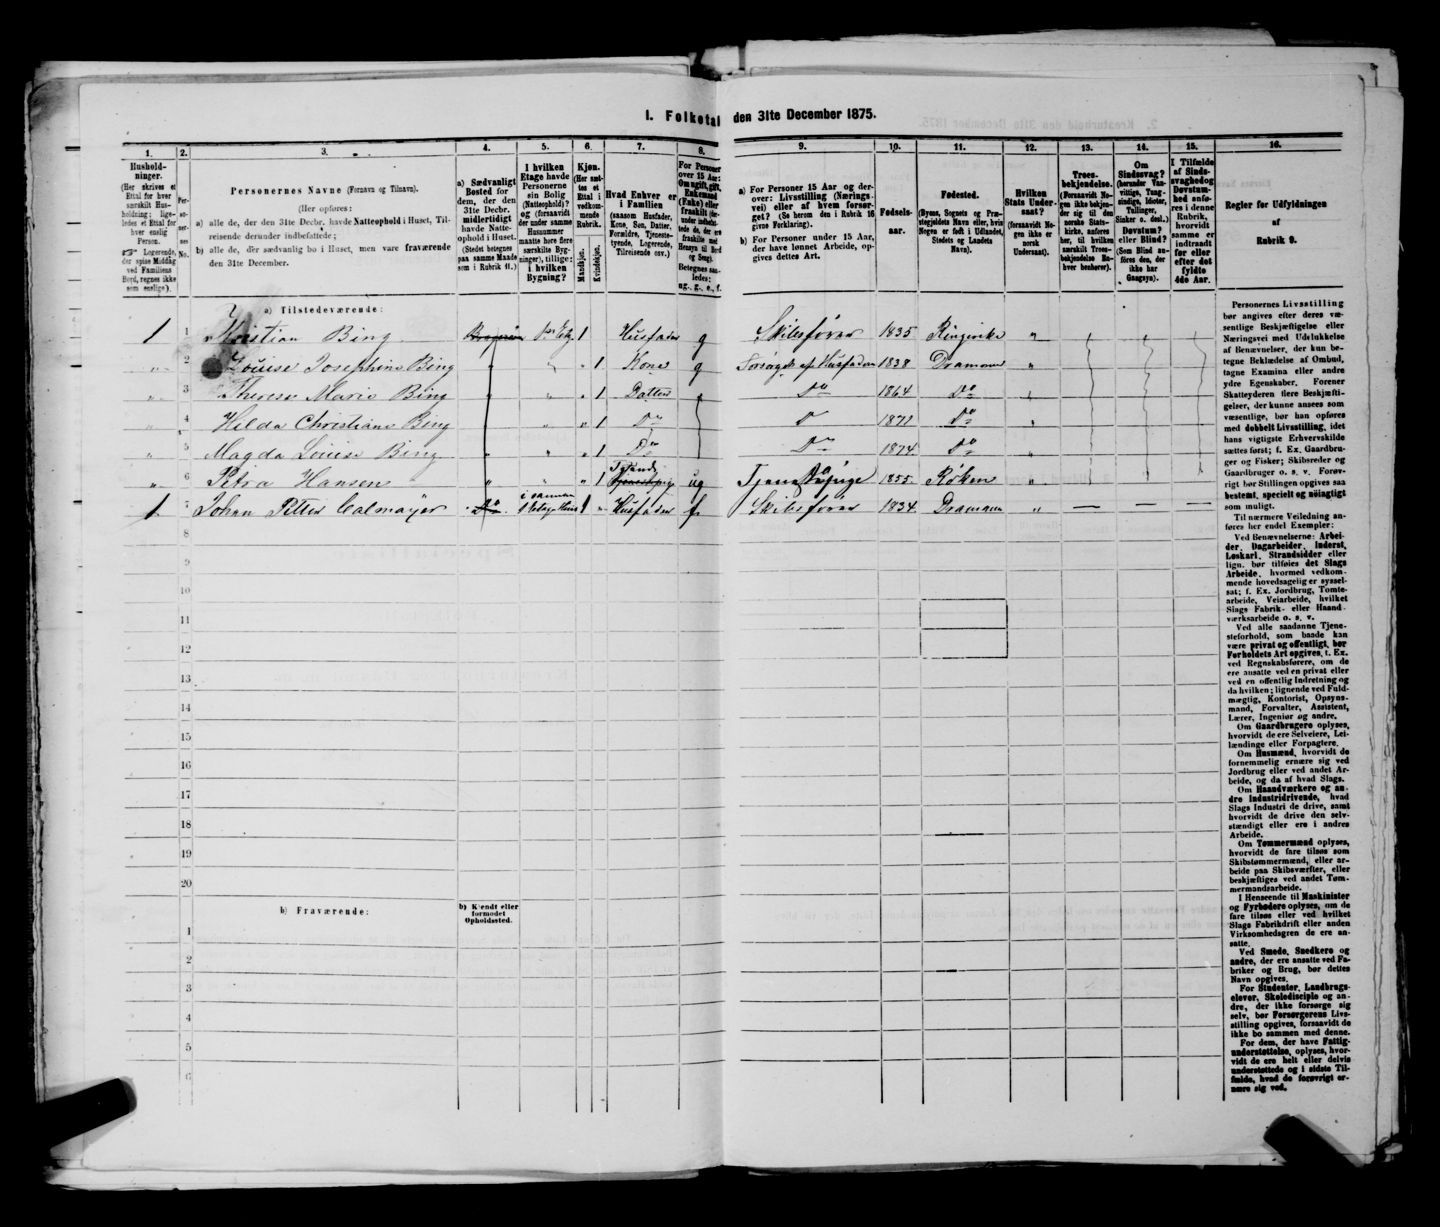 1. Folketal den 31te December 1875.
1. 2. 3. 4. 5. 6. 7. 8. 9. 10. 11. 12. 13. 14. 15. 16.
Hushold-
ninger.
(Her skrives et
Ettal for hver
særskilt Hus-
holdning; lige-
ledes et Ettal for
hver enslig
Person.
☞ Logerende,
der spise Middag
ved Familiens
Bord, regnes ikke
som enslige).
Per-
so-
ner-
nes
No.
Personernes Navne (Fornavn og Tilnavn).
(Her opføres:
a) alle de, der den 31te Decbr. havde Natteophold i Huset, Til-
reisende derunder indbefattede;
b) alle de, der sædvanlig bo i Huset, men vare fraværende
den 31te December.
a) Sædvanligt
Bosted for
dem, der den
31te Decbr.
midlertidigt
havde Natte-
ophold i Huset.
(Stedet betegnes
paa samme Maade
som i Rubrik 11.)
I hvilken
Etage havde
Personerne
sin Bolig
(Natteophold)?
og (forsaavidt
der under samme
Husnummer
maatte høre flere
særskilte Byg-
ninger), tillige:
i hvilken
Bygning?
Kjøn.
(Her sæt-
tes et
Ettal i
vedkom-
mende
Rubrik.
Mandkjøn.
Kvindekjøn.
Hvad Enhver er
i Familien
(saasom Husfader,
Kone, Søn, Datter,
Forældre, Tjeneste-
tyende, Logerende,
Tilreisende osv.)
For Personer
over 15 Aar:
Om ugift, gift,
Enkemand
(Enke) eller
fraskilt
a) For Personer 15 Aar og der-
over: Livsstilling (Nærings-
vei) eller af hvem forsør-
get? (Se herom den i Rubrik 16
givne Forklaring).
b) For Personer under 15 Aar,
der have lønnet Arbeide, op-
gives dettes Art.
Fødsels-
aar.
Fødested.
(Byens, Sognets og Præ-
stegjeldets Navn eller, hvis
Nogen er født i Udlandet,
Stedets og Landets
Navn).
Hvilken
Stats Under-
saat?
(forsaavidt No-
gen ikke er
norsk
Undersaat).
Troes-
bekjendelse.
(Forsaavidt No-
gen ikke bekjen-
der sig til den
norske Stats-
kirke, anføres
her, til hvilken
særskilt Troes-
bekjendelse En-
hver benhører).
Om
Sindssvag?
(herunder Van-
vittige, Tung-
sindige, Idioter,
Tullinger,
Sinker o. desl.)
Døvstum?
eller Blind?
(Som Blind an-
føres den, der
ikke har
Gangsyn).
I Tilfælde
af Sinds-
svaghed og
Døvstum-
hed anfø-
res i denne
Rubrik,
hvorvidt
samme er
indtraadt
før eller
efter det
fyldte
4de Aar.
Regler for Udfyldningen
af
Rubrik 9.
a) Tilstedeværende:
1 1 Kristian Bing 1ste Etg 1 Husfader g Skibsfører 1835 Ringerike „
„ 2 Louise Josephine Bing „ „ 1 Kone g Forsørges af Husfaderen 1838 Drammen „
„ 3 Therese Marie Bing „ „ „ 1 Datter Do 1864 Do „
„ 4 Hilda Christiane Bing „ „ „ 1 Do D 1871 Do „
„ 5 Magda Louise Bing „ „ „ 1 Do Do 1874 Do „
„ 6 Petra Hansen „ „ „ 1 ug Tjenestepige 1855 Røken „
1 7 Johan Petter Calmayer Do i samme 1 „ Husfader f Skibsfører 1834 Drammen „ — — —
8
9
10
11
12
13
14
15
16
17
18
19
20
b) Fraværende:
b) Kjendt eller
formodet
Opholdssted.
1
2
3
4
5
6
Personernes Livsstilling
bør angives efter deres væ-
sentlige Beskjæftigelse eller
Næringsvei med Udelukkelse
af Benævnelser, der kun be-
tegne Beklædelse af Ombud,
tagne Examina eller andre
ydre Egenskaber. Forener
Skatteyderen flere Beskjæfti-
gelser, der kunne ansees som
væsentlige, bør han opføres
med dobbelt Livsstilling, idet
hans vigtigste Erhvervskilde
sættes først; f. Ex. Gaardbru-
ger og Fisker; Skibsreder og
Gaardbruger o. s. v. Forøv-
rigt bør Stillingen opgives saa
bestemt, specielt og nøiagtigt
som muligt.
Til nærmere Veiledning an-
føres her endel Exempler:
Ved Benævnelserne: Arbei-
der, Dagarbeider, Inderst,
Løskarl, Strandsidder eller
lign. bør tilføies det Slags
Arbeide, hvormed vedkom-
mende hovedsagelig er syssel-
sat; f. Ex. Jordbrug, Tomte-
arbeide, Veiarbeide, hvilket
Slags Fabrik- eller Haand-
værksarbeide o. s. v.
Ved alle saadanne Tjene-
steforhold, som baade kan
være privat og offentligt, bør
Forholdets Art opgives, f. Ex.
ved Regnskabsførere, om de
ere ansatte ved en privat eller
ved en offentlig Indretning og
da hvilken; lignende ved Fuld-
mægtig, Kontorist, Opsyns-
mand, Forvalter, Assistent,
Lærer, Ingeniør og andre.
Om Gaardbrugere oplyses,
hvorvidt de ere Selveiere, Lei-
lændinge eller Forpagtere.
Om Husmænd, hvorvidt de
fornemmelig ernære sig ved
Jordbrug eller ved andet Ar-
beide, og da af hvad Slags.
Om Haandværkere og an-
dre Industridrivende, hvad
Slags Industri de drive, samt
hvorvidt de drive den selv-
stændigt eller ere i andres
Arbeide.
Om Tømmermænd oplyses,
hvorvidt de fare tilsøs som
Skibstømmermænd, eller ar-
beide paa Skibsværfter, eller
beskjæftiges ved andet Tøm-
mermandsarbeide.
I Henseende til Maskinister
og Fyrbødere oplyses, om de
fare tilsøs eller ved hvilket
Slags Fabrikdrift eller anden
Virksomhedsgren de ere an-
satte.
Ved Smede, Snedkere og
andre, der ere ansatte ved Fa-
briker og Brug, bør dettes
Navn opgives.
For Studenter, Landbrugs-
elever, Skoledisciple og an-
dre, der ikke forsørge sig
selv, bør Forsørgerens Livs-
stilling opgives, forsaavidt de
ikke bo sammen med denne.
For dem, der have Fattig-
understøttelse, oplyses, hvor-
vidt de ere helt eller delvis
understøttede og i sidste Til-
fælde, hvad de forøvrigt er-
nære sig ved.